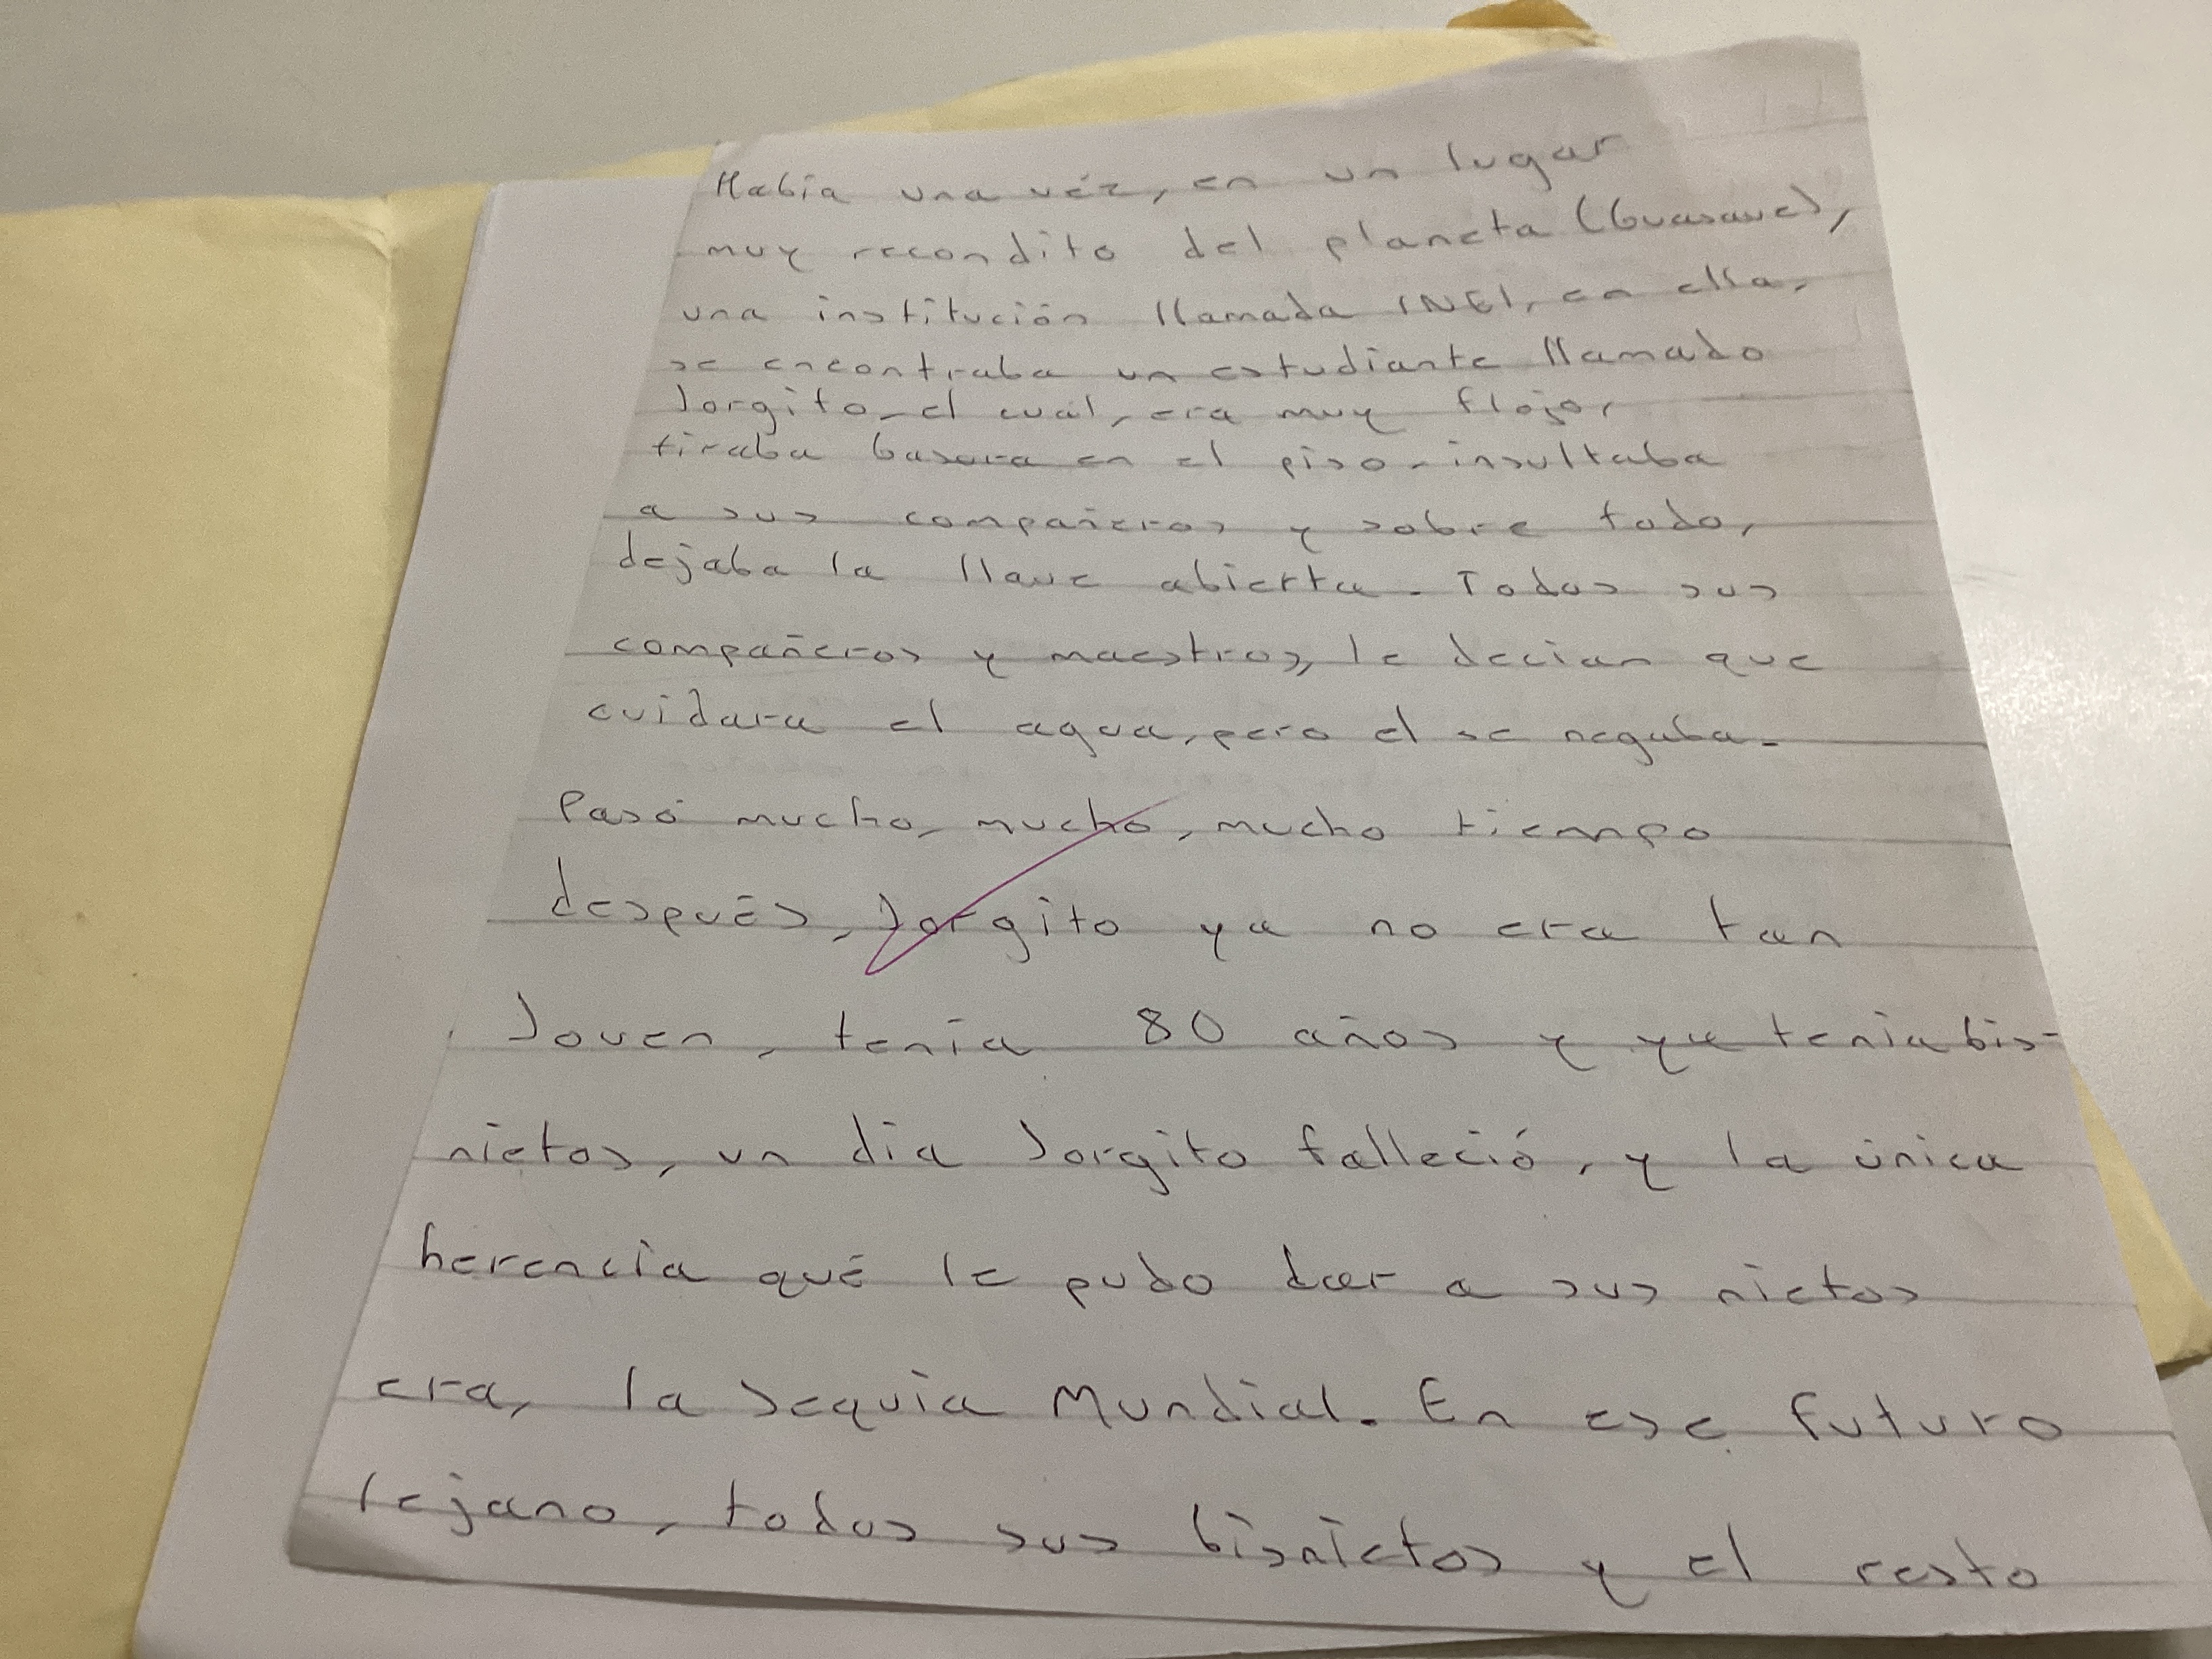 Había una véz, en un lugar
muy recondito del planeta (Guasave),
una institución llamada INEI, en ella,
se encontraba un estudiante llamado
Jorgito, el cual, era muy flojo,
tiraba basura en el piso, insultaba
a sus compañeros y sobre todo,
dejaba la llave abierta. Todos sus
compañeros y maestros, le decian que
cuidara el agua, pero el se negaba.
Pasó mucho, mucho, mucho tiempo
después, Jorgito ya no era tan
Joven, tenía 80 años y ya tenía bis-
nietos, un día Jorgito falleció, y la única
herencia qué le pudo dar a sus nietos
era, la sequía Mundial. En ese futuro
lejano, todos sus bisnietos y el resto